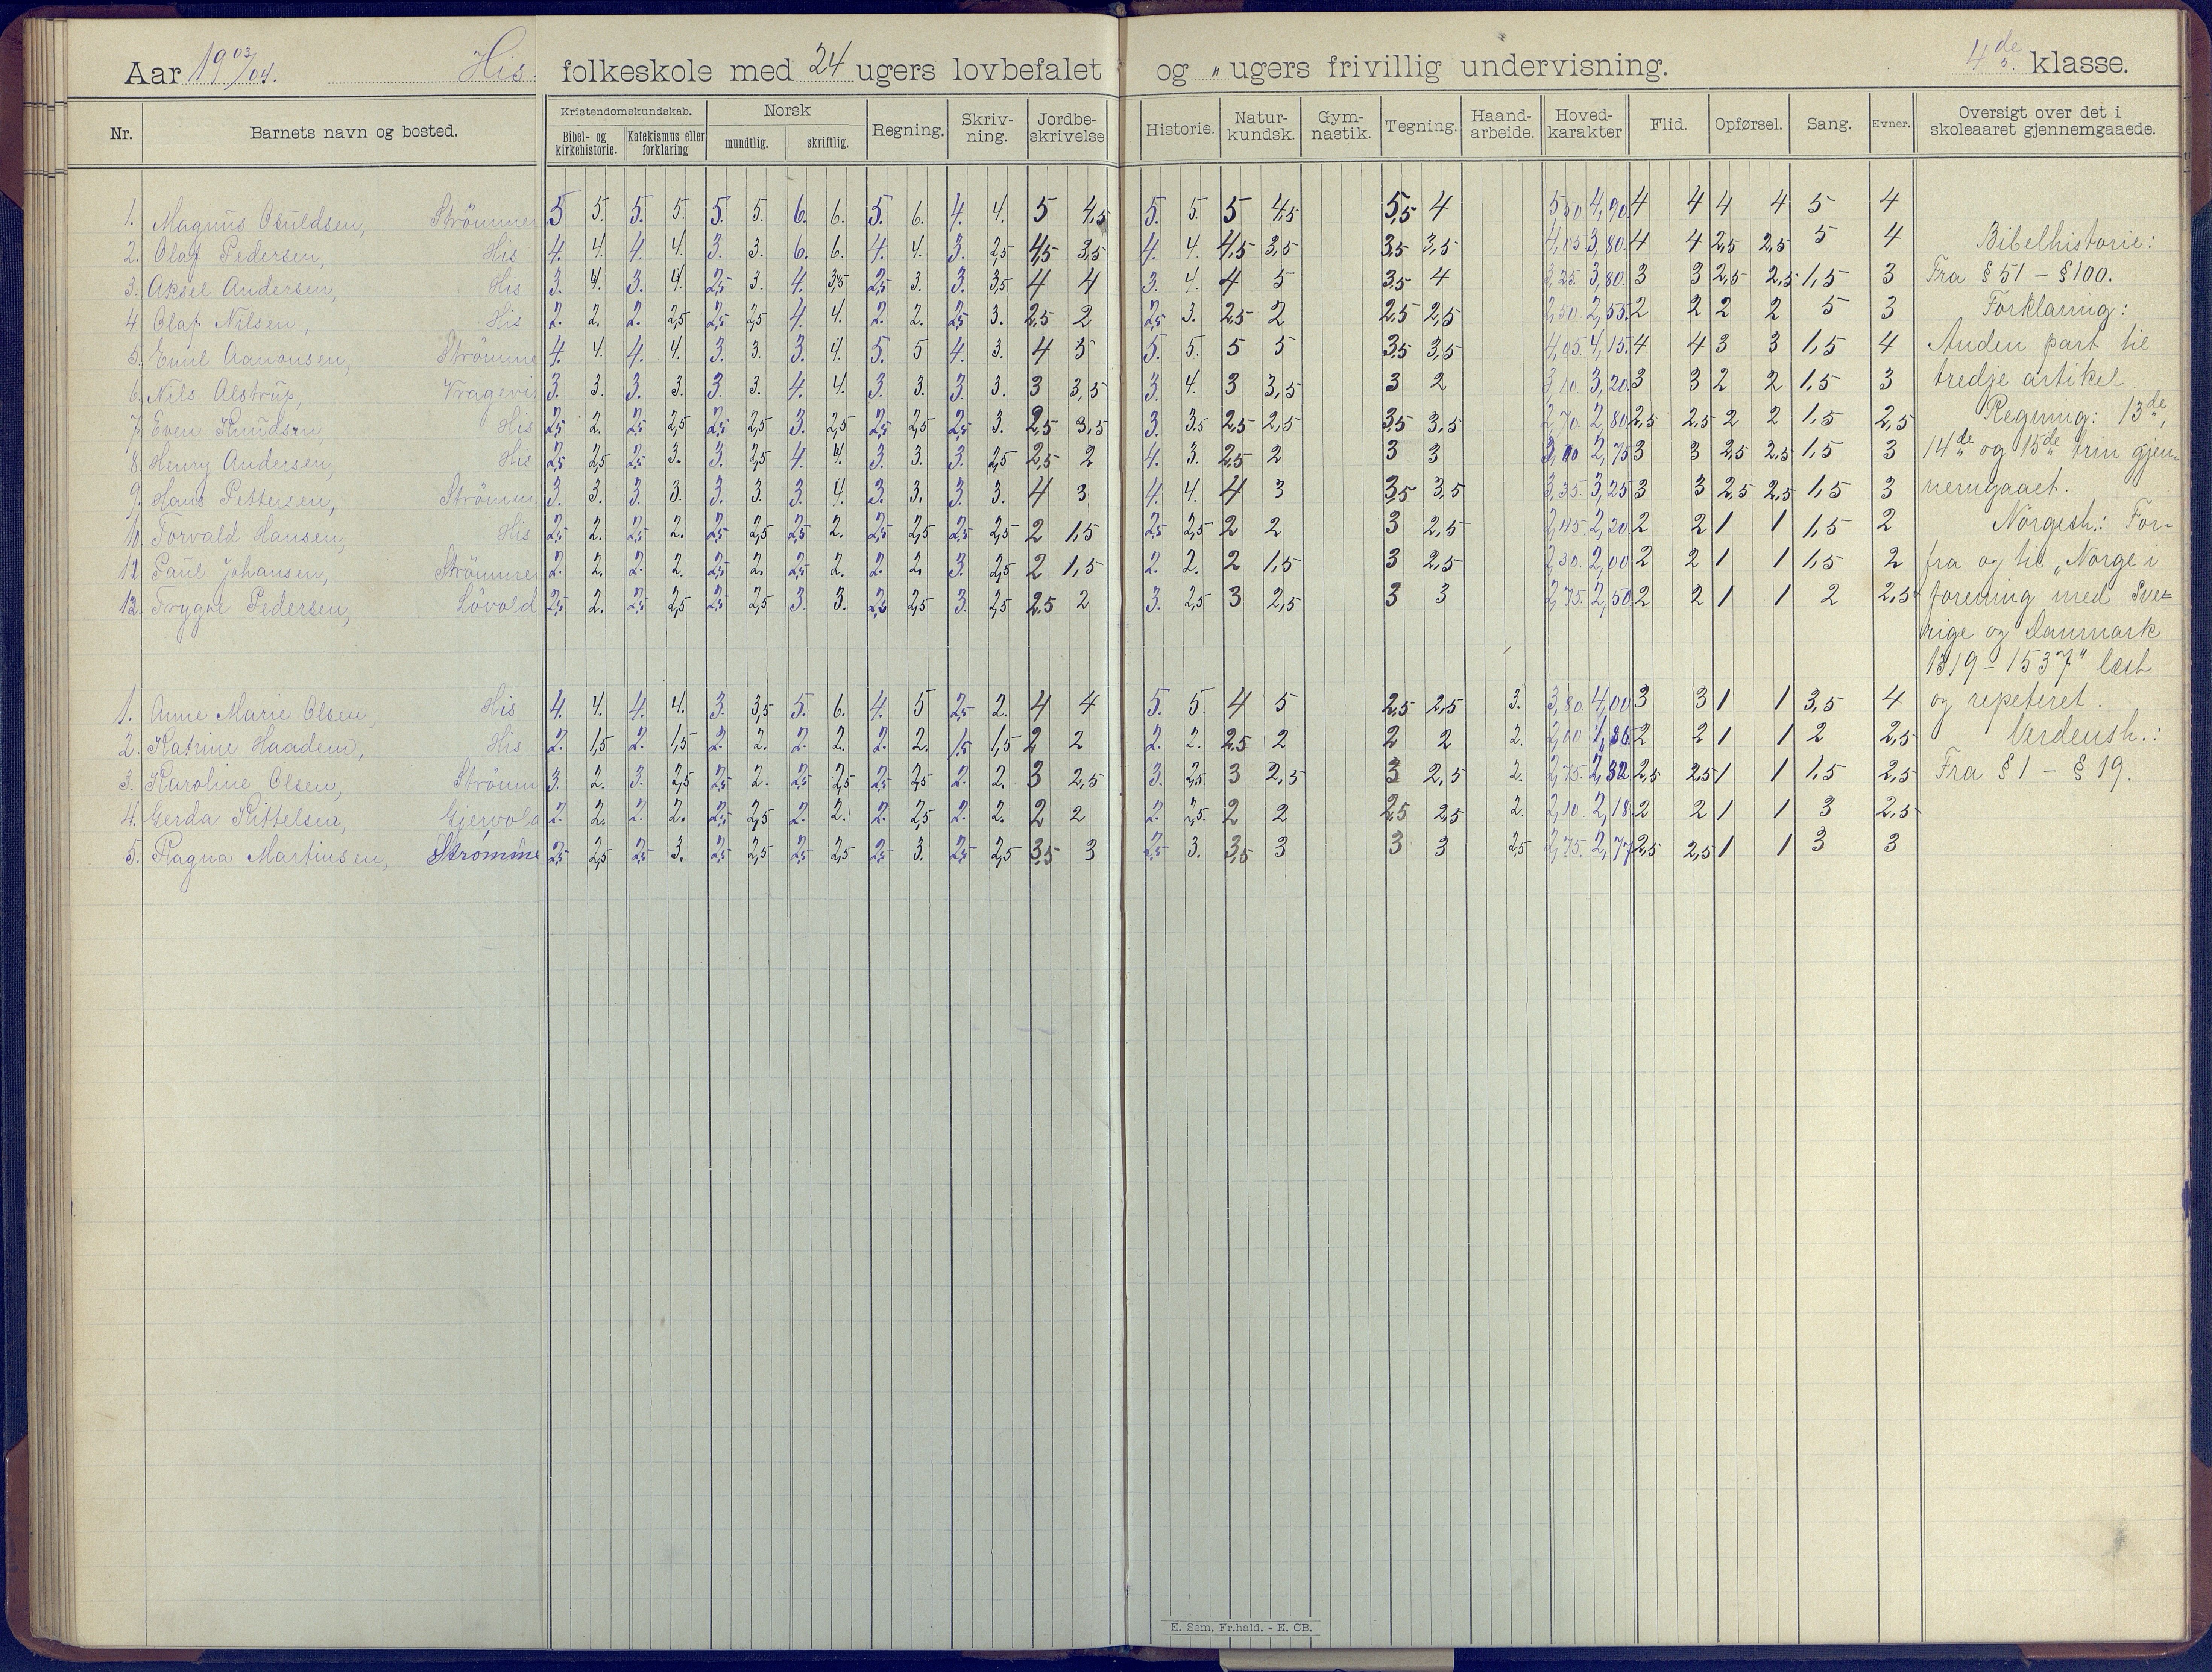 Aar 19 03/04. His. folkeskole med 24 ugers lovbefalet og „ ugers frivillig undervisning. 4de klasse.
Nr. Barnets navn og bosted. Kristendomskundskab. Bibel- og kirkehistorie. Katekismus eller forklaring Norsk mundtlig. skriftlig. Regning. Skriv-ning. Jordbe-skrivelse Historie. Natur-kundsk. Gym-nastik. Tegning. Haand-arbeide. Hoved-karakter Flid. Opførsel. Sang. Evner. Oversigt over det i skoleaaret gjennemgaaede.
1. Magnus Osuldsen, Strömmen 5 5. 5. 5. 5. 5. 6. 6. 5. 6. 4. 4. 5 4,5 5. 5. 5 4,5 5,5 4 5,50. 4,90. 4 4 4 4 5 4
2. Olaf Pedersen, His 4. 4. 4. 4. 3. 3. 6. 6. 4. 4. 3. 2,5 4,5 3,5 4. 4. 4,5 3,5 3,5 3,5 4,05 3,80. 4 4 2,5 2,5 5 4 Bibelhistorie:
3. Aksel Andersen, His 3. 4. 3. 4. 2,5 3. 4. 3,5 2,5 3. 3. 3,5 4 4 3. 4. 4 5 3,5 4 3,25. 3,80. 3 3 2,5 2,5 1,5 3 Fra § 51 - § 100.
4. Olaf Nilsen, His 2. 2. 2. 2,5 2,5 2,5 4. 4. 2. 2. 2,5 3. 2,5 2 2,5 3. 2,5 2 2,5 2,5 2,50. 2,55. 2 2 2 2 5 3 Forklaring:
5. Emil Aanonsen, Strömme 4. 4. 4. 4. 3. 3. 3. 4. 5. 5 4. 3. 4 5 5. 5. 5 5 3,5 3,5 4,05. 4,15. 4 4 3 3 1,5 4 Anden part til
6. Nils Alstrup, Vragevi 3. 3. 3. 3. 3. 3. 4. 4. 3. 3. 3. 3. 3 3,5 3. 4. 3 3,5 3 2 3,10 3,20 3 3 2 2 1,5 3 tredje artikel.
7. Even Knudsen, His 2,5 2. 2,5 2,5 2,5 2,5 3. 2,5 2,5 2,5 2,5 3. 2,5 3,5 3. 3,5 2,5 2,5 3,5 3,5 2,70 2,80 2,5 2,5 2 2 1,5 2,5 Regning: 13de,
8. Henry Andersen, His 2,5 2,5 2,5 3. 3. 2,5 4. 4. 3. 3. 3. 2,5 2,5 2 4. 3. 2,5 2 3 3 3,00 2,75 3 3 2,5 2,5 1,5 3 14de og 15de trin gjen-
9. Hans Pettersen, Strömm 3. 3. 3. 3. 3. 3. 3. 4. 3. 3. 3. 3. 4 3 4. 4. 4 3 3,5 3,5 3,35. 3,25 3 3 2,5 2,5 1,5 3 nemgaaet.
10. Torvald Hansen, His 2,5 2. 2,5 2. 2,5 2,5 2,5 2. 2,5 2,5 2,5 2,5 2 1,5 2,5 2,5 2 2 3 2,5 2,45. 2,20 2 2 1 1 1,5 2 Norgesh.: For-
11. Paul Johansen, Strömmen 2. 2. 2. 2. 2,5 2. 2,5 2. 2. 2. 3. 2,5 2 1,5 2. 2. 2 1,5 3 2,5 2,30. 2,00 2 2 1 1 1,5 2 fra og til „Norge i
12. Trygve Pedersen, Lövold 2,5 2. 2,5 2,5 2,5 2,5 3. 3. 2,5 2,5 3. 2,5 2,5 2 3. 2,5 3 2,5 3 3 2,75. 2,50 2 2 1 1 2 2,5 forening med Sve-
rige og Danmark
1319 - 1537" læst
1. Anne Marie Olsen, His 4. 4. 4. 4. 3. 3,5 5. 6. 4. 5 2,5 2. 4 4 5. 5. 4 5 2,5 2,5 3. 3,80. 4,00 3 3 1 1 3,5 4 og repeteret.
2. Katrine Haadem, His 2. 1,5 2. 1,5 2. 2. 2. 2. 2. 2. 1,5 1,5 2 2 2. 2. 2,5 2 2 2 2. 2,00 1,86 2 2 1 1 2 2,5 Verdensh.:
3. Karoline Olsen, Strömm 3. 2. 3. 2,5 2,5 2. 2,5 2,5 2,5 2,5 2. 2. 3 2,5 3. 2,5 3 2,5 3 2,5 2. 2,75. 2,32 2,5 2,5 1 1 1,5 2,5 Fra § 1 - § 19.
4. Gerda Kittelsen, Gjervold 2. 2. 2. 2. 2,5 2,5 2. 2. 2. 2,5 2. 2. 2 2 2. 2,5 2 2 2,5 2,5 2. 2,10 2,18 2 2 1 1 3 2,5
5. Ragna Martinsen, Strømme 2,5 2,5 2,5 3. 2,5 2,5 2,5 2,5 2,5 3. 2,5 2,5 3,5 3 2,5 3. 3,5 3 3 3 2,5 2,75. 2,77 2,5 2,5 1 1 3 3
E. Sem, Fr.hald. - E. CB.